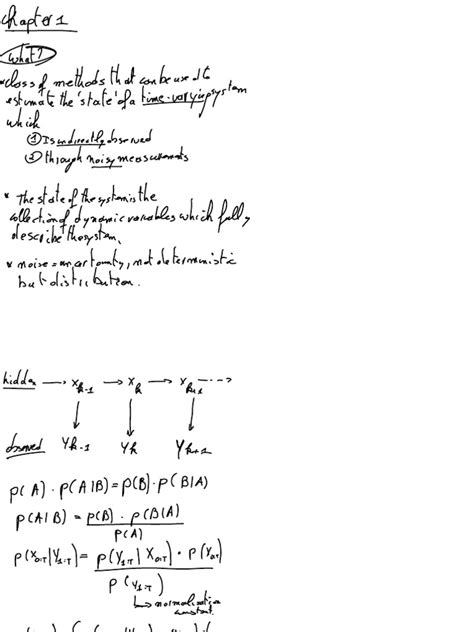 Chapter 1
What?
* class of methods that can be used to
estimate the 'state' of a time-varying system
which
① Is indirectly observed
② through noisy measurements
* The state of the system is the
collection of dynamic variables which fully
describe the system.
* noise = uncertainty, not deterministic
but distribution.
hidden → x_{k-1} → x_k → x_{k+1} ---→
observed y_{k-1} y_k y_{k+1}
p(A) · p(A|B) = p(B) · p(B|A)
p(A|B) = p(B) · p(B|A) / p(A)
p(x_{0:T}|y_{1:T}) = p(y_{1:T}|x_{0:T}) · p(x_{0:T}) / p(y_{1:T})
↳ normalisation
constant.